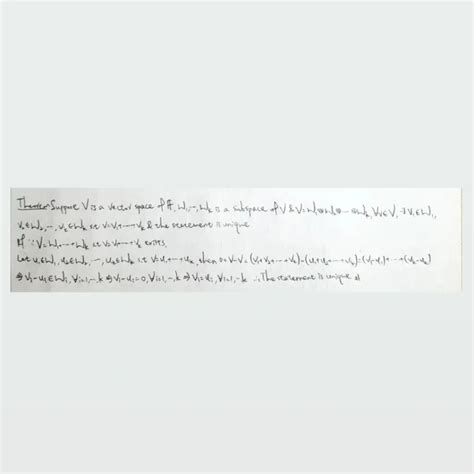 Theorem Suppose V is a vector space of F, W₁, ..., Wₖ is a subspace of V & V = W₁⊕W₂⊕ ... ⊕Wₖ, ∀v∈V, ∃v₁∈W₁,
v₂∈W₂, ..., vₖ∈Wₖ s.t. v=v₁+...+vₖ & the statement is unique
pf ∵ V=W₁+...+Wₖ s.t. v=v₁+...+vₖ exists.
Let u₁∈W₁, u₂∈W₂, ..., uₖ∈Wₖ s.t. v=u₁+...+uₖ, then 0=v-v=(v₁+v₂+...+vₖ)-(u₁+u₂+...+uₖ)=(v₁-u₁)+...+(vₖ-uₖ)
⇒ vᵢ-uᵢ∈Wᵢ, ∀i=1,...,k ⇒ vᵢ-uᵢ=0, ∀i=1,...,k ⇒ vᵢ=uᵢ, ∀i=1,...,k ∴ The statement is unique